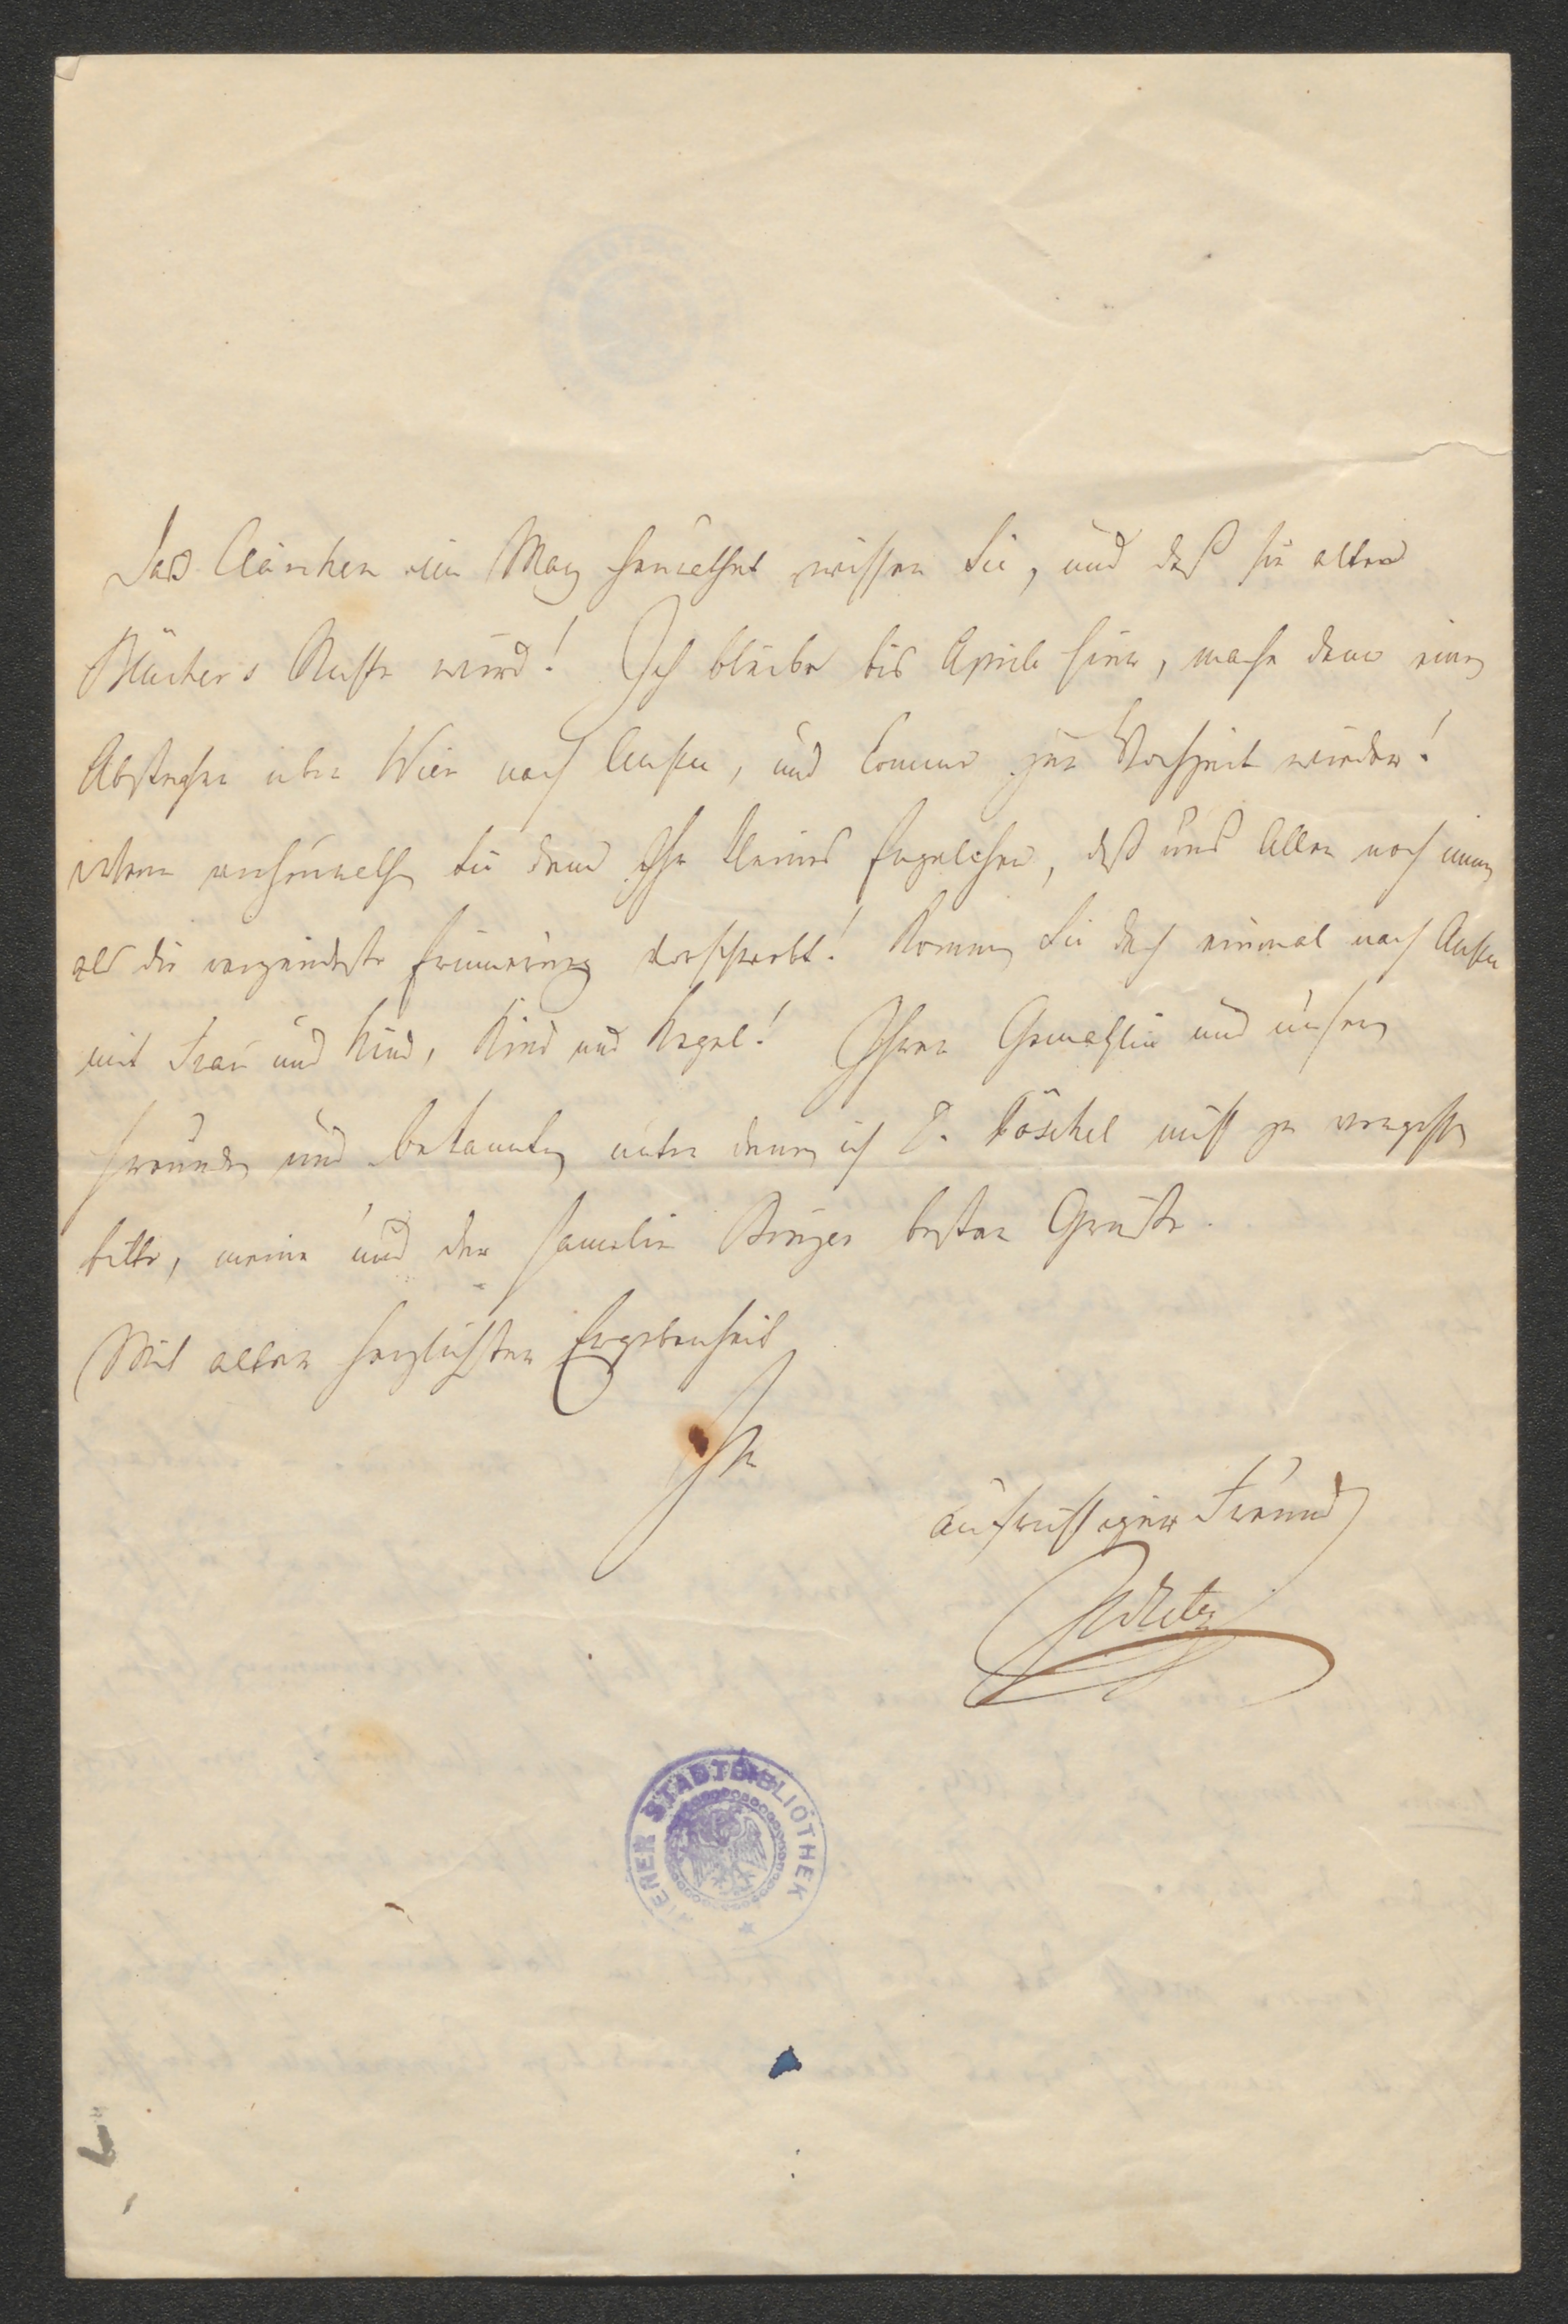 Daß Clärchen im May heurathet wissen Sie, und daß sie alter
Blücher's Nichte wird! Ich bleibe bis April hier, mache dann einen
Abstecher über Wien nach Aussee, und komme zur Hochzeit wieder!
wann verheurathen Sie denn Ihr kleines Engelchen, das uns Allen noch immer
als die reizendste Erinnerung vorschwebt! Kommen Sie doch einmal nach Aussee
mit Frau und Kind, Kind und Kegel! Ihrer Gemahlin und unsern
Freunden und Bekannten unter denen ich D. Löschel nicht zu vergessen
bitte, meine und der Familie Binzer besten Grüße.
Mit aller herzlichsten Ergebenheit
Ihr
aufrichtiger Freund
Zedlitz
WIENER STADTBIBLIOTHEK